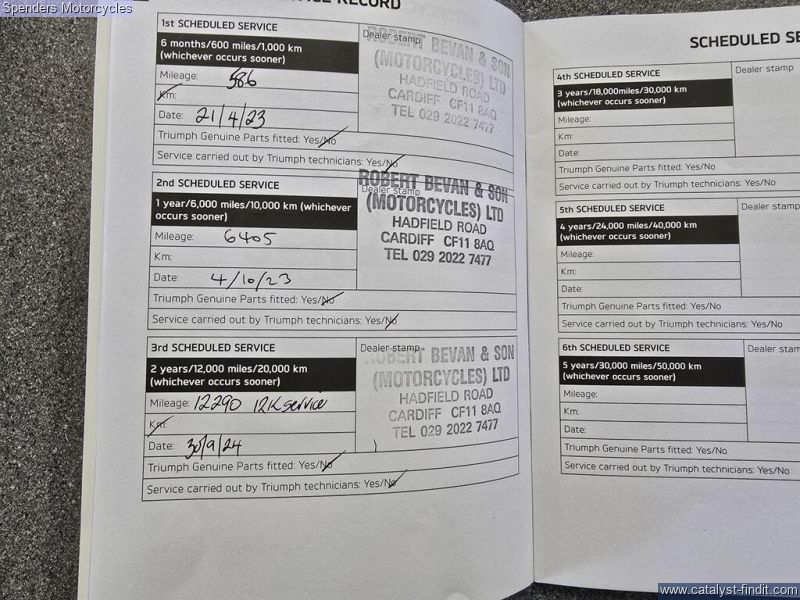 Spenders Motorcycles
RECORD
1st SCHEDULED SERVICE
6 months/600 miles/1,000 km
(whichever occurs sooner)
Mileage: 586
Km:
Date: 21/4/23
Triumph Genuine Parts fitted: Yes/No
Service carried out by Triumph technicians: Yes/No
Dealer stamp
ROBERT BEVAN & SON
(MOTORCYCLES) LTD
HADFIELD ROAD
CARDIFF CF11 8AQ
TEL 029 2022 7477
2nd SCHEDULED SERVICE
1 year/6,000 miles/10,000 km (whichever
occurs sooner)
Mileage: 6405
Km:
Date: 4/10/23
Triumph Genuine Parts fitted: Yes/No
Service carried out by Triumph technicians: Yes/No
Dealer stamp
ROBERT BEVAN & SON
(MOTORCYCLES) LTD
HADFIELD ROAD
CARDIFF CF11 8AQ
TEL 029 2022 7477
3rd SCHEDULED SERVICE
2 years/12,000 miles/20,000 km
(whichever occurs sooner)
Mileage: 12290 12K service
Km:
Date: 30/9/24
Triumph Genuine Parts fitted: Yes/No
Service carried out by Triumph technicians: Yes/No
Dealer stamp
ROBERT BEVAN & SON
(MOTORCYCLES) LTD
HADFIELD ROAD
CARDIFF CF11 8AQ
TEL 029 2022 7477
SCHEDULED SE
4th SCHEDULED SERVICE
3 years/18,000miles/30,000 km
(whichever occurs sooner)
Mileage:
Km:
Date:
Triumph Genuine Parts fitted: Yes/No
Service carried out by Triumph technicians: Yes/No
Dealer stamp
5th SCHEDULED SERVICE
4 years/24,000 miles/40,000 km
(whichever occurs sooner)
Mileage:
Km:
Date:
Triumph Genuine Parts fitted: Yes/No
Service carried out by Triumph technicians: Yes/No
Dealer stamp
6th SCHEDULED SERVICE
5 years/30,000 miles/50,000 km
(whichever occurs sooner)
Mileage:
Km:
Date:
Triumph Genuine Parts fitted: Yes/No
Service carried out by Triumph technicians: Yes/No
Dealer stam
www.catalyst-findit.com